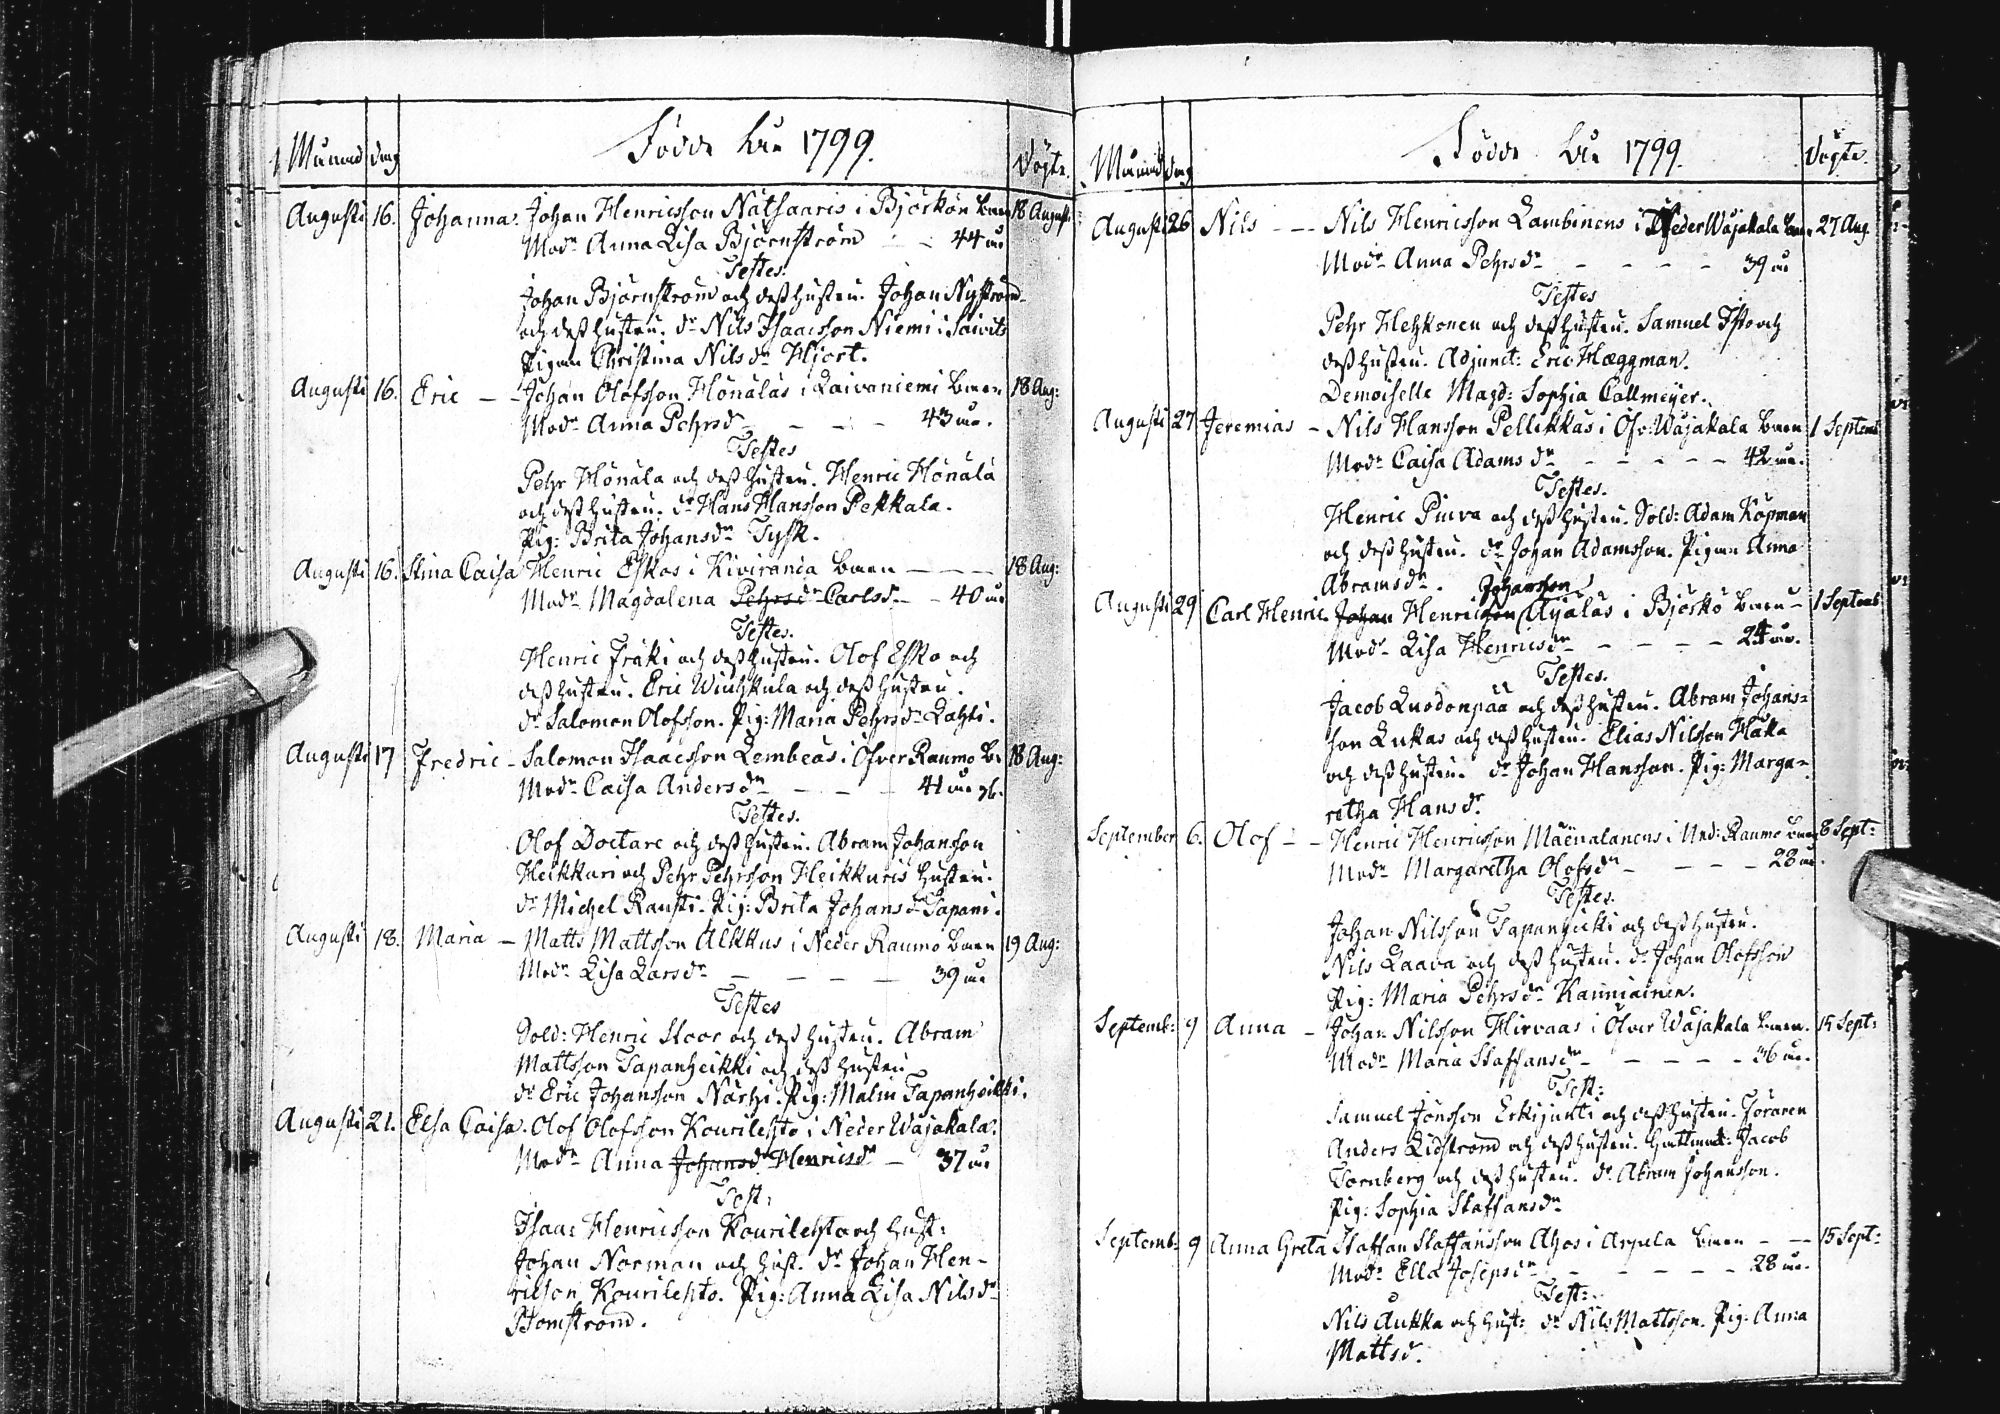 Månad dag Födde År 1799. Döpte.
Augusti 16. Johanna. Johan Henricsson Nätsaaris i Björkön barn 18 August:
Modr Anna Lisa Björnström - - 44 år
Testes.
Johan Björnström och dess hustru. Johan Nyström
och dess hustru. dr Nils Isaacsson Niemi i Saivits
Pigan Christina Nils dr Hjort.
Augusti 16. Eric - - Johan Olofsson Hönälas i Laivaniemi barn 18 Aug:
Modr Anna Pehrsdr - - - 43 år.
Testes
Pehr Hönälä och dess hustru. Henric Hönälä
och dess hustru. dr Hans Hansson Pekkala.
Pig: Brita Johansdr Tysk.
Augusti 16. Stina Caisa Henric Eskos i Kiviranda barn - - - 18 Aug:
Modr Magdalena Pehrsdr Carlsdr - - 40 år
Testes.
Henric Fräki och dess hustru. Olof Esko och
dess hustru. Eric Wiuhkula och dess hustru.
dr Salomon Olofsson. Pig: Maria Pehrsdr Lahti.
Augusti 17 Fredric - Salomon Isaacsson Lembeäs i Öfver Raumo b: 18 Aug:
Modr Caisa Andersdr - - - 41 år
Testes.
Olof Doctare och dess hustru. Abram Johansson
Heikkuri och Pehr Pehrsson Heikkuris hustru.
dr Michel Rausti. Pig: Brita Johansdr Tapani.
Augusti 18. Maria - Matts Mattsson Alkkus i Neder Raumo barn 19 Aug:
Modr Lisa Larsdr - - - - 39 år
Testes
Sold: Henric Stoor och dess hustru. Abram
Mattsson Tapanheikki och dess hustru
dr Eric Johansson Närhi. Pig: Malin Tapanheikki.
Augusti 21. Elsa Caisa. Olof Olofsson Kourilehto i Neder Wäjakala.
Modr Anna Johansdr Henricsdr - 37 år
Test:
Isaac Henricsson Kourilehto och hust:
Johan Norman och hust. dr Johan Hen-
ricson Kourilehto. Pig: Anna Lisa Nilsdr
Blomström.
Månad dag Födde År 1799. Döpte.
Augusti 26 Nils - - Nils Henricsson Lambinens i Neder Wäjakala barn 27 Aug.
Modr Anna Pehrsdr - - - - - 39 år
Testes
Pehr Hehkonen och dess hustru. Samuel Isto och
dess hustru. Adjunct: Eric Hæggman.
Demoiselle Magd: Sophia Callmeyer.
Augusti 27 Jeremias - Nils Hansson Pellikkas i Öfv: Wäjakala barn 1 Septemb
Modr Caisa Adamsdr - - - - - 42 år.
Testes.
Henric Piuva och dess hustru. Sold: Adam Köpman
och dess hustru. dr Johan Adamsson. Pigan Anna
Abramsdr.
Johansson
Augusti 29 Carl Henric. Johan Henricsson Äyäläs i Björkö barn - 1 Septemb
Modr Lisa Henricsdr - - - - - 24 år.
Testes.
Jacob Luodonpää och dess hustru. Abram Johans=
son Lukas och dess hustru. Elias Nilsson Haka
och dess hustru. dr Johan Hansson. Pig: Marga=
retha Hansdr.
September 6. Olof - - Henric Henricsson Mäenalanens i Ned: Raumo barn 8 Sept:
Modr Margaretha Olofsdr - - - - 28 år.
Testes.
Johan Nilsson Tapanheikki och dess hustru.
Nils Laava och dess hustru. dr Johan Olofsson
Pig: Maria Pehrsdr Kauniainen.
Septemb: 9 Anna - Johan Nilsson Hirvaas i Öfver Wäjakala barn. 15 Sept:
Modr Maria Staffansdr - - - - - 36 år.
Test:
Samuel Jönsson Erkijunti och dess hustru. Föraren
Anders Lidström och dess hustru. Jacob
Tornberg och dess hustru. dr Abram Johansson.
Pig: Sophia Staffansdr
Septemb: 9 Anna Greta Staffan Staffansson Ahos i Arpela barn - - 15 Sept:
Modr Ella Josepsdr - - - - - 28 år.
Test:
Nils Aukka och hust: dr Nils Mattsson. Pig: Anna
Mattsdr.